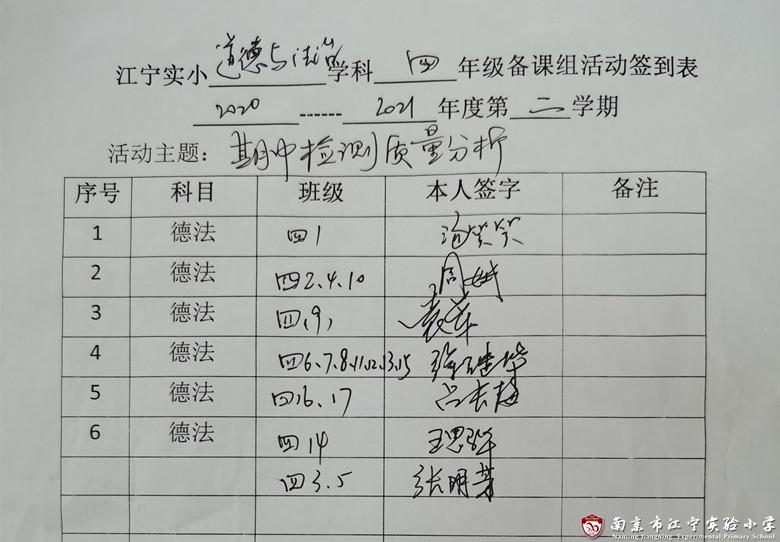 江宁实小道德与法治学科 四 年级备课组活动签到表
2020 ------ 2021 年度第 二 学期
活动主题：期中检测质量分析
序号 科目 班级 本人签字 备注
1 德法 四1 笑笑
2 德法 四2、4、10 周
3 德法 四、9、 袁
4 德法 四6、7、8、11、12、13、15
5 德法 四16、17 吕长梅
6 德法 四14 王思
四3、5 张明芳
南京市江宁实验小学
Nanjing Jiangning Experimental Primary School